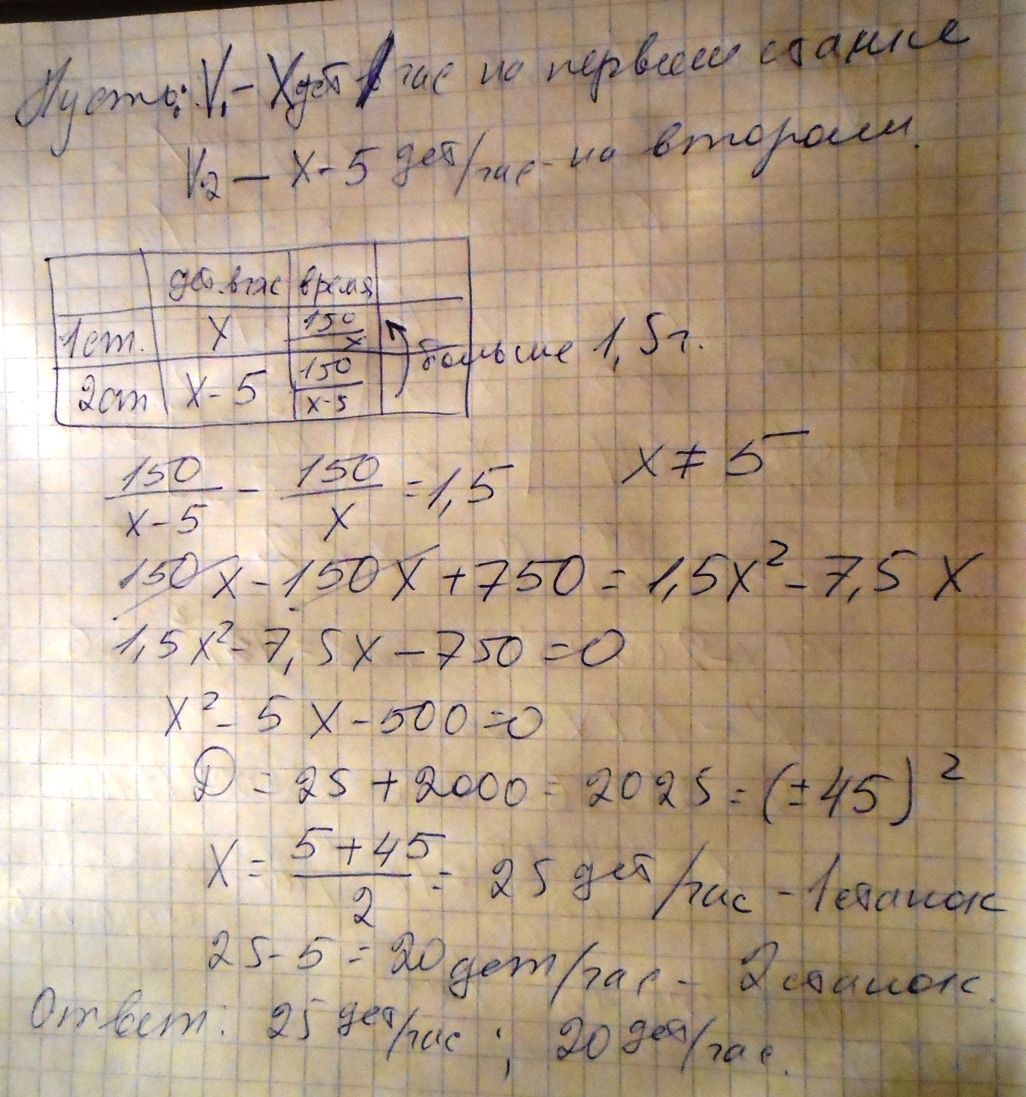 Пусть: V₁ – X дет/час на первом станке
V₂ – X-5 дет/час - на втором.
дет. в час время
1 ст. X 150/x
2 ст X-5 150/x-5
больше 1,5 г.
150/x-5 - 150/x = 1,5 x ≠ 5
150x - 150x + 750 = 1,5x² - 7,5x
1,5x² - 7,5x - 750 = 0
x² - 5x - 500 = 0
D = 25 + 2000 = 2025 = (±45)²
X = 5+45/2 = 25 дет/час - 1 станок
25-5 = 20 дет/час - 2 станок.
Ответ: 25 дет/час ; 20 дет/час.